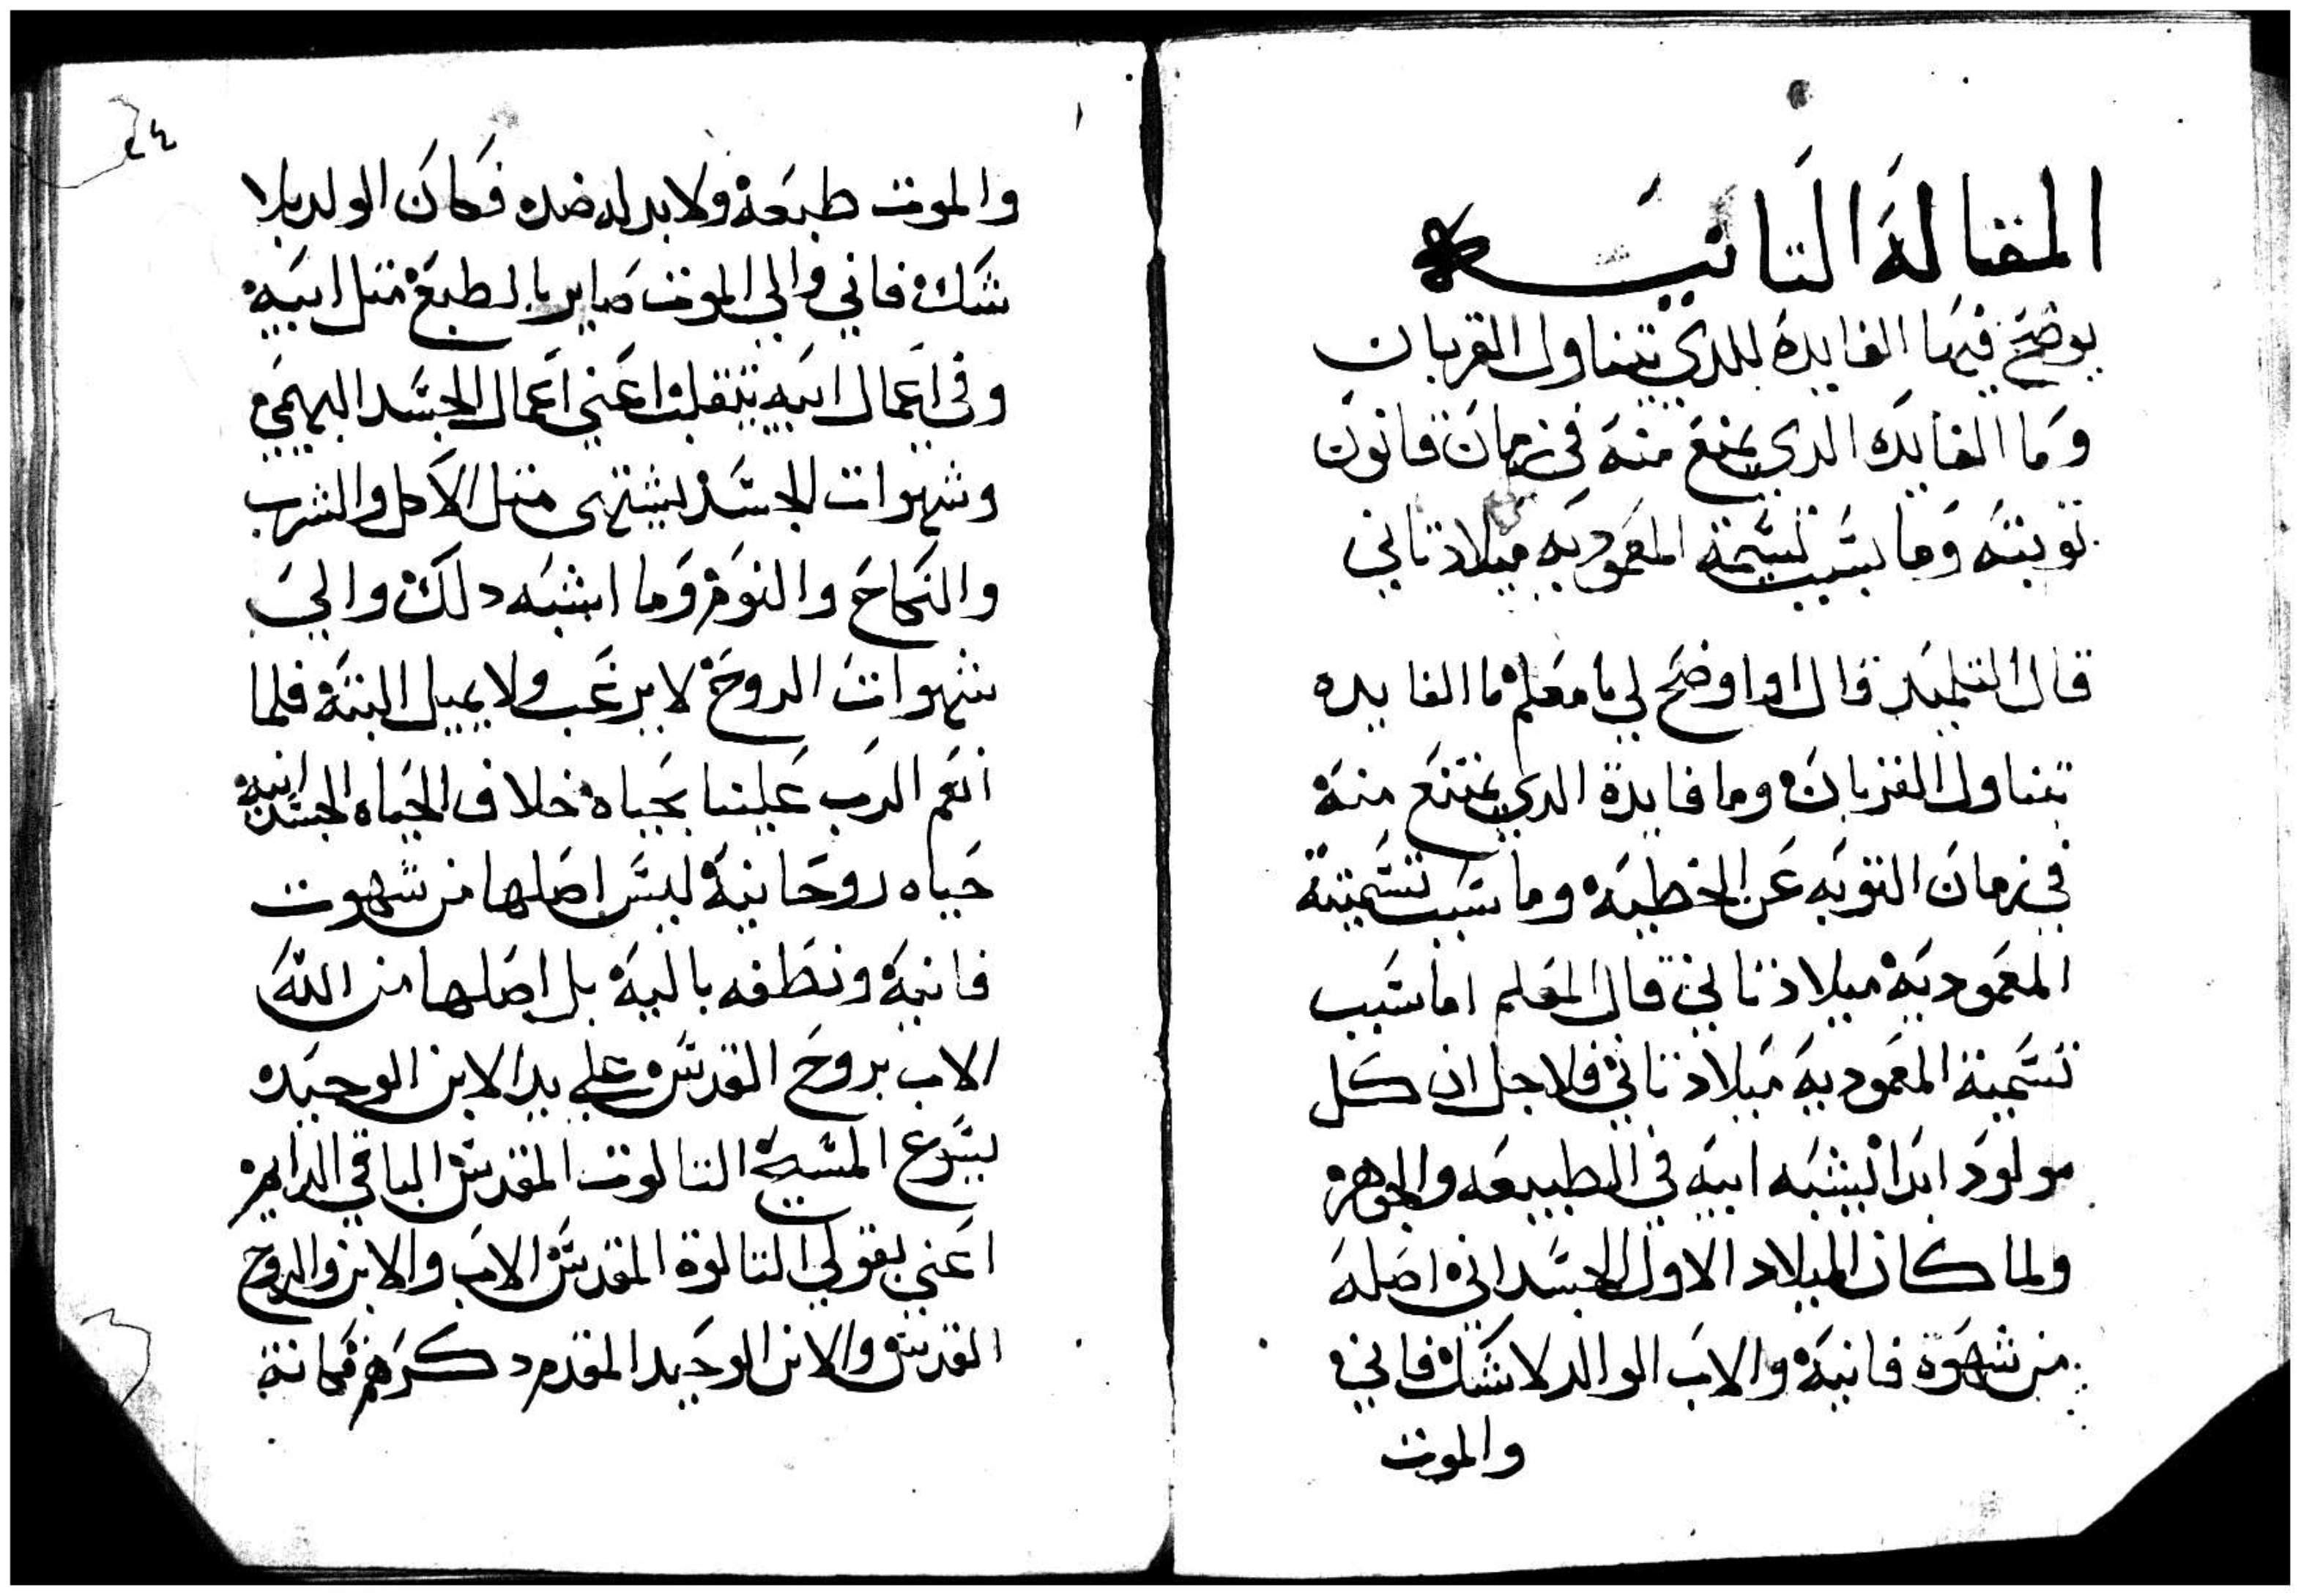 المقالة التانيه
يوضح فيها الفايدة للدي يتناول القربان
وما الفايده الدي يمنع منه في زمان قانون
توبته وما سبب تسيمة المعموديه ميلاد تاني
قال التلميد قال اوا وضح لي يا معلم ما الفايده
يتناول القربان وما فايدة الدي يمتنع منه
في زمان التوبه عن الخطيه وما سبب تسميتة
المعموديه ميلاد تاني قال المعلم اما سبب
تسمية المعموديه ميلاد تاني فلاجل ان كل
مولود ابدا يشبه ابيه في الطبيعه والجوهر
ولما كان الميلاد الاول الجسداني اصله
من شهوة فانية والاب الوالد لا شك فاني
والموت
٢٤
والموت طبعه ولا بد له ضده فكان الولد بلا
شك فاني والي الموت صاير بالطبع متل ابيه
وفي اعمال ابيه يتقلب اعني اعمال الجسد البهيمي
وشهوات الجسد يشتهى متل الاكل والشرب
والنكاح والنوم وما اشبه دلك والي
شهوات الروح لا يرغب ولا يميل البته فلما
انعم الرب علينا بحياة خلاف الحياه الجسدانية
حياه روحانية ليس اصلها من شهوت
فانية ونطفه بالية بل اصلها من الله
الاب بروح القدس علي يد الابن الوحيده
يسوع المسيح التالوت المقدس الباقي الدايم
اعني بقولي التالوة المقدس الاب والابن والروح
القدس والابن الوحيد المقدم دكرهم فكانة